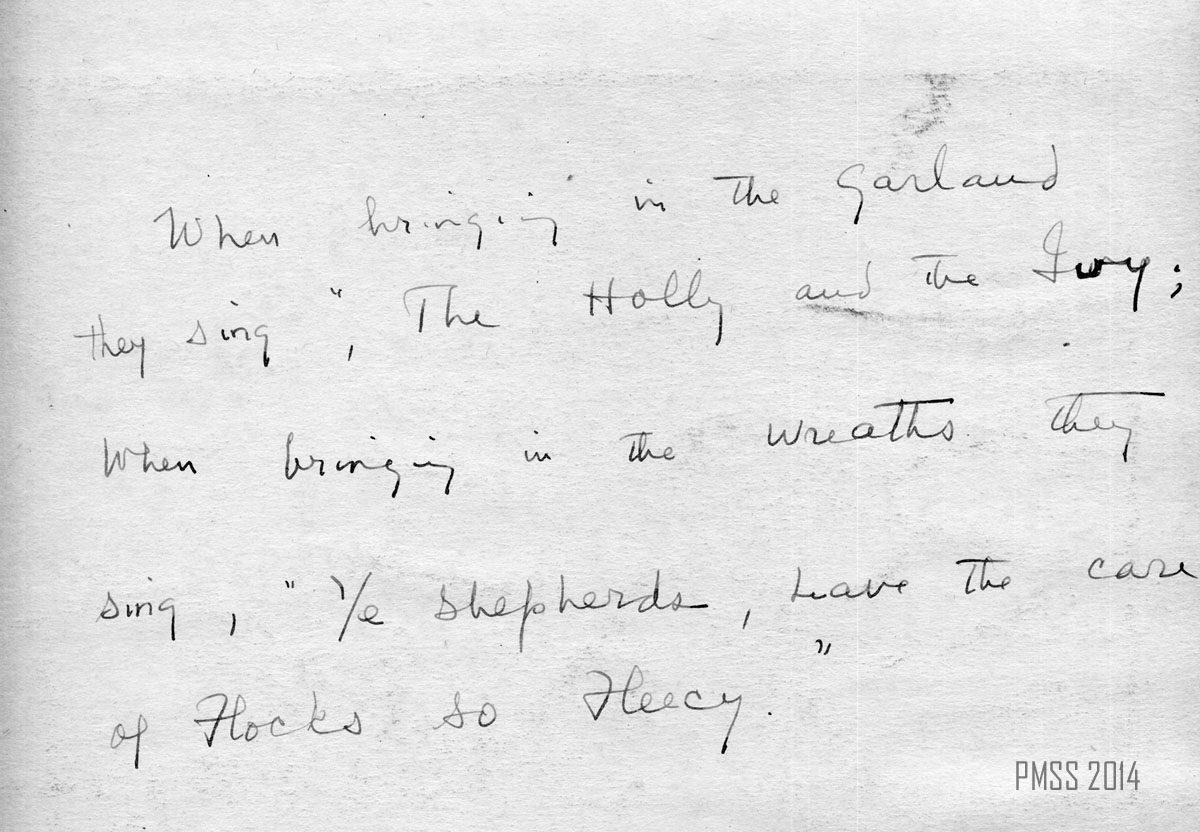 When bringing in the Garland
they sing ", The Holly and the Ivy;
When bringing in the wreaths they
sing, "Ye shepherds, Leave the care
of Flocks so Fleecy."
PMSS 2014